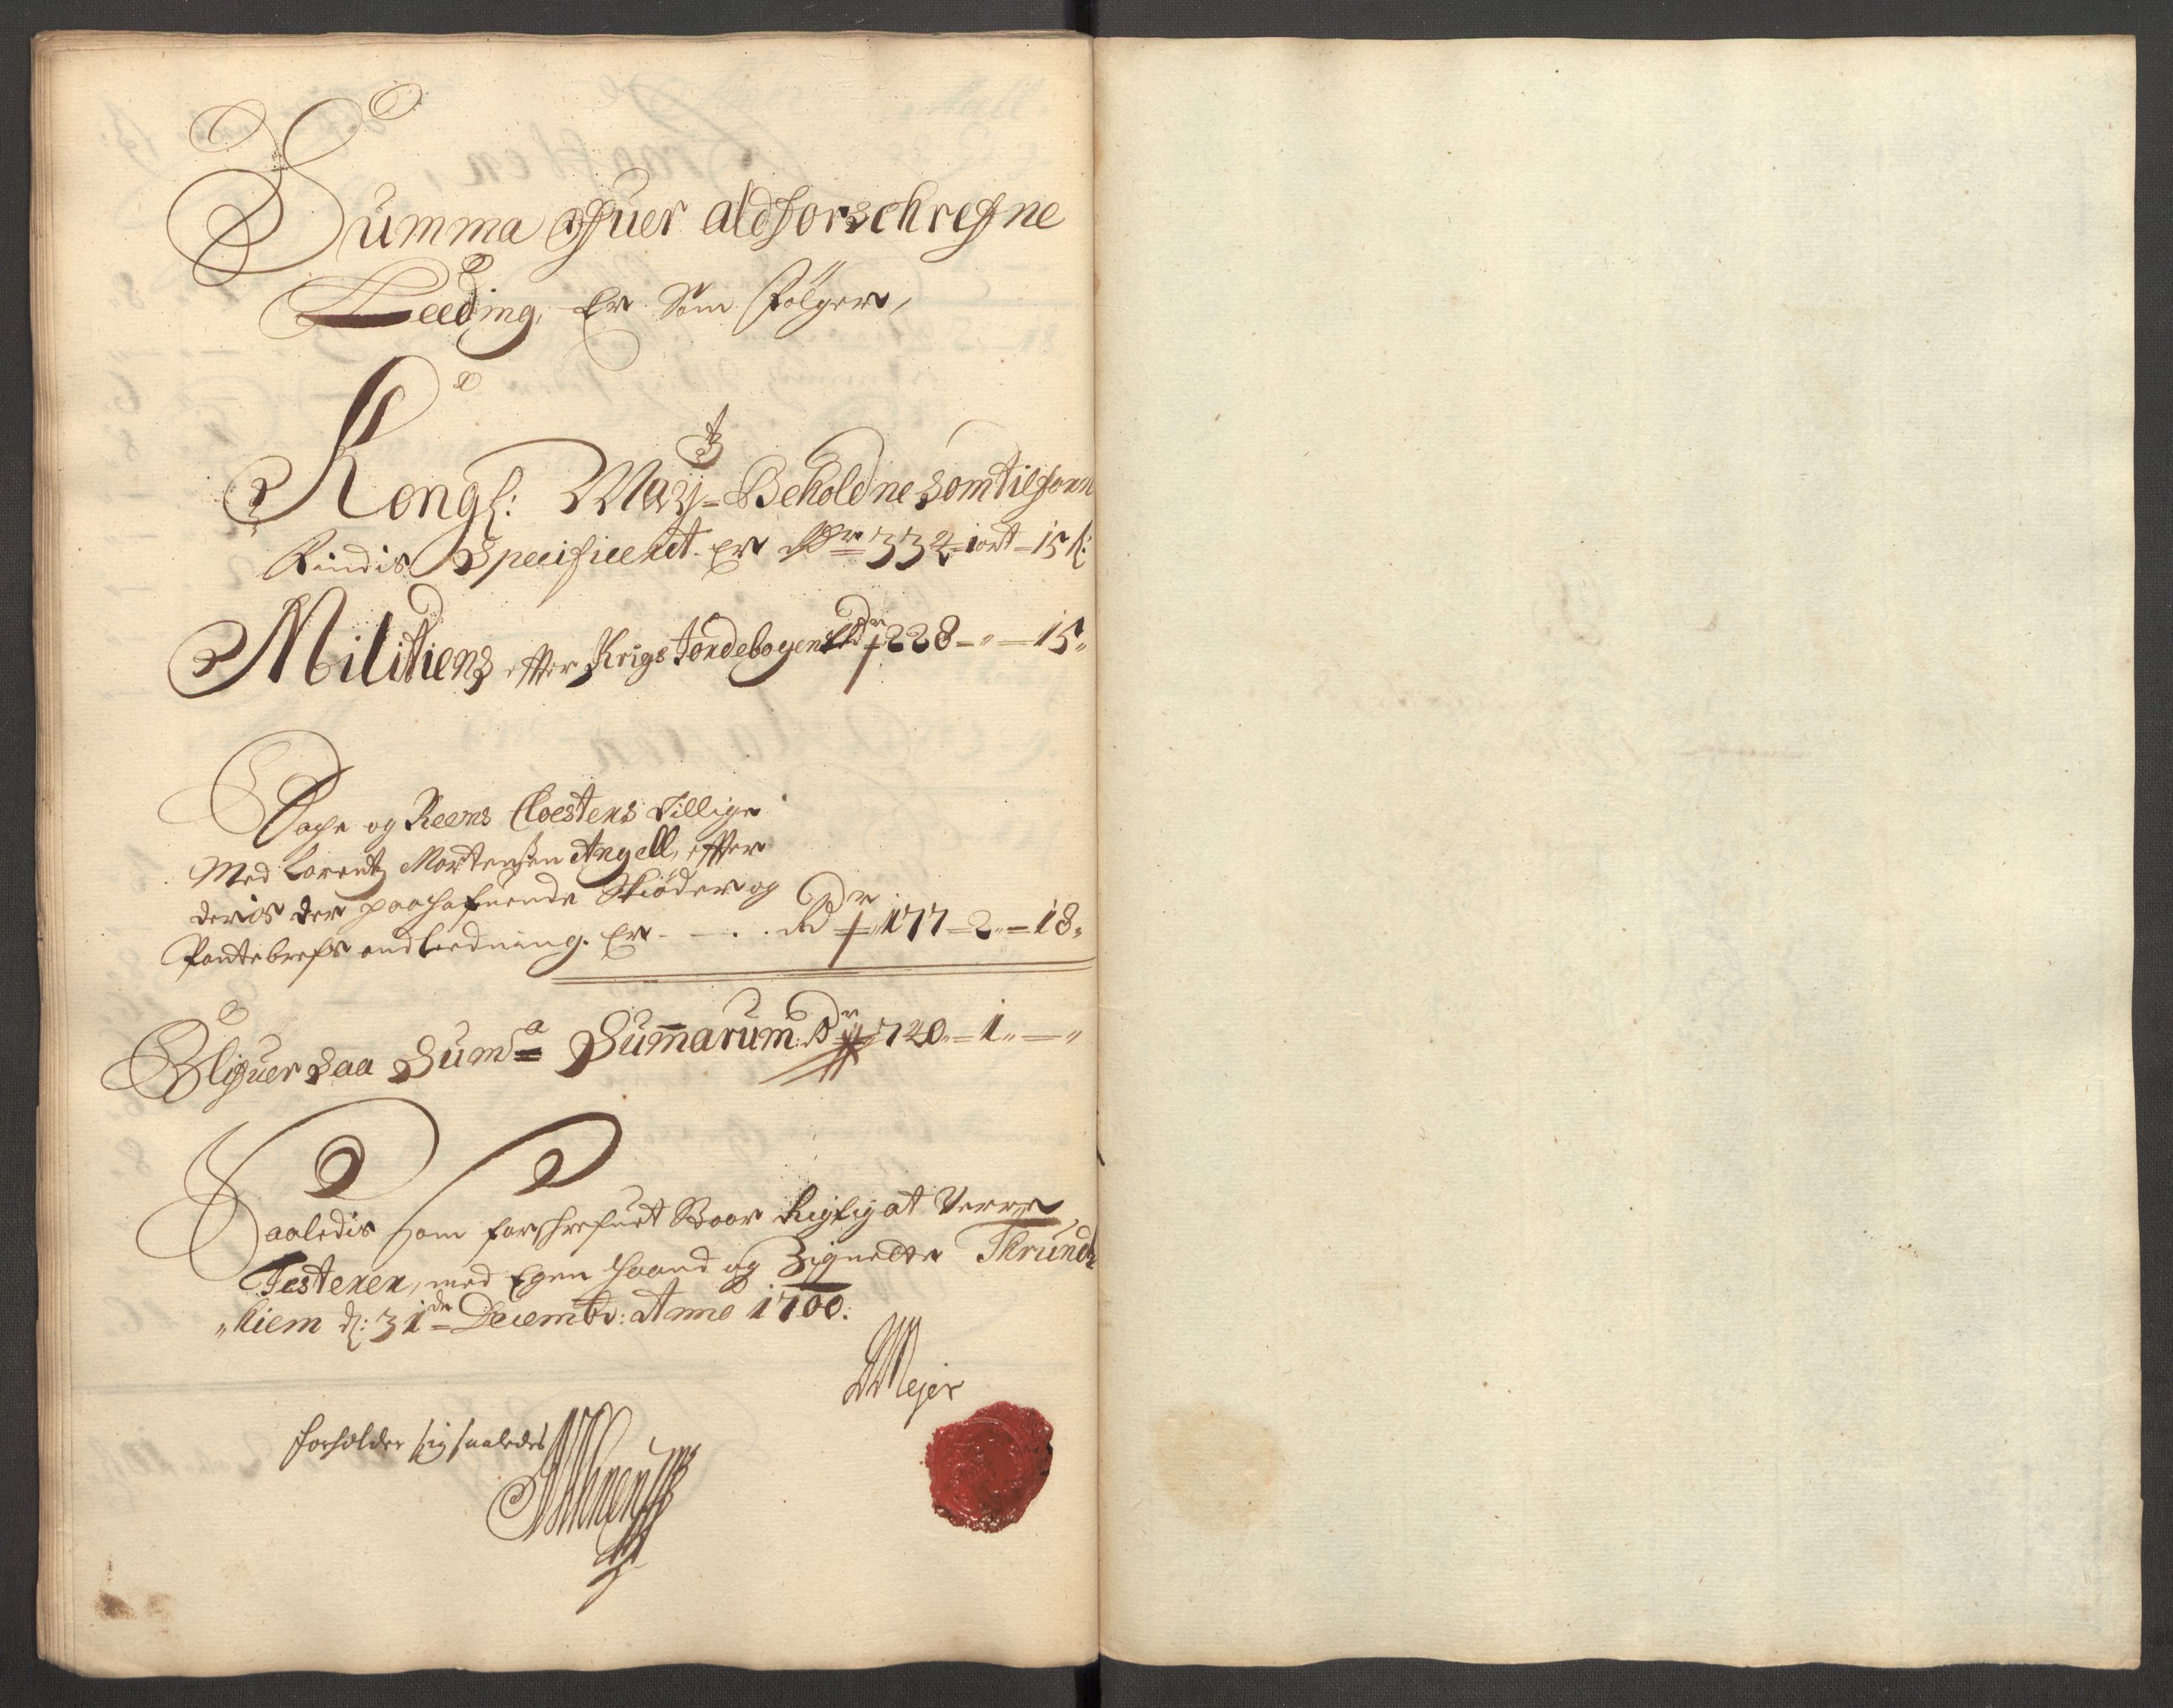 Summa ofuer aldforschrefne
Leeding, Er Som følger,
Kongl: Maytz Beholdne somtilforn
findis Specificeret er Rdr 332 = 1 ort = 15 s:
Militiens effter Krigs Jordebogens Rdr 228 = " = 15 "
og Reens Cloesters tillige
Med Lorentz Mortensen Angell, effter
deris der paa hafuende Skiøder og
Pantebrefs Er - - . . Rdr 177 = 2 " = 18 "
Blifuer saa Suma Summarum: Rdr 720 " = 1 " = "
Saaledis som forschrefuet staar Rigtig at Verre
Testerer, med Egen Haand og Zignette Thrund
"hiem d: 31de Decembr: Anno 1700.
Mejer
forholder sig saaledes